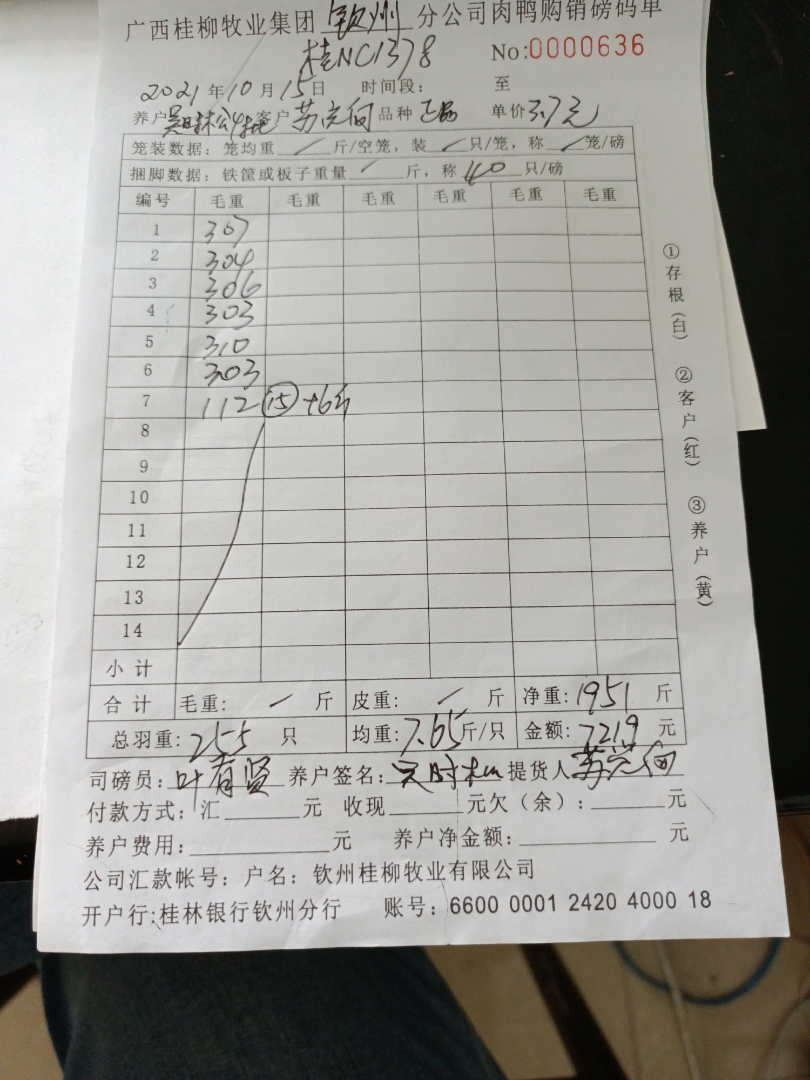 广西桂柳牧业集团 钦州 分公司肉鸭购销磅码单
桂NC1378 No:0000636
2021年10月15日 时间段: 至
养户 客户 苏 品种 正品 单价3.7元
笼装数据:笼均重 / 斤/空笼,装 / 只/笼,称 / 笼/磅
捆脚数据:铁筐或板子重量 / 斤,称40只/磅
编号 毛重 毛重 毛重 毛重 毛重 毛重
1 307
2 304
3 306
4 303
5 310
6 303
7 112 ⑮ +6斤
8
9
10
11
12
13
14
小计
合计 毛重: / 斤 皮重: / 斤 净重:1951斤
总羽重:255只 均重:7.65斤/只 金额:7219元
司磅员:叶青贤 养户签名: 提货人 苏
付款方式:汇 元 收现 元欠(余): 元
养户费用: 元 养户净金额: 元
公司汇款帐号:户名:钦州桂柳牧业有限公司
开户行:桂林银行钦州分行 账号:6600 0001 2420 4000 18
①存根(白) ②客户(红) ③养户(黄)